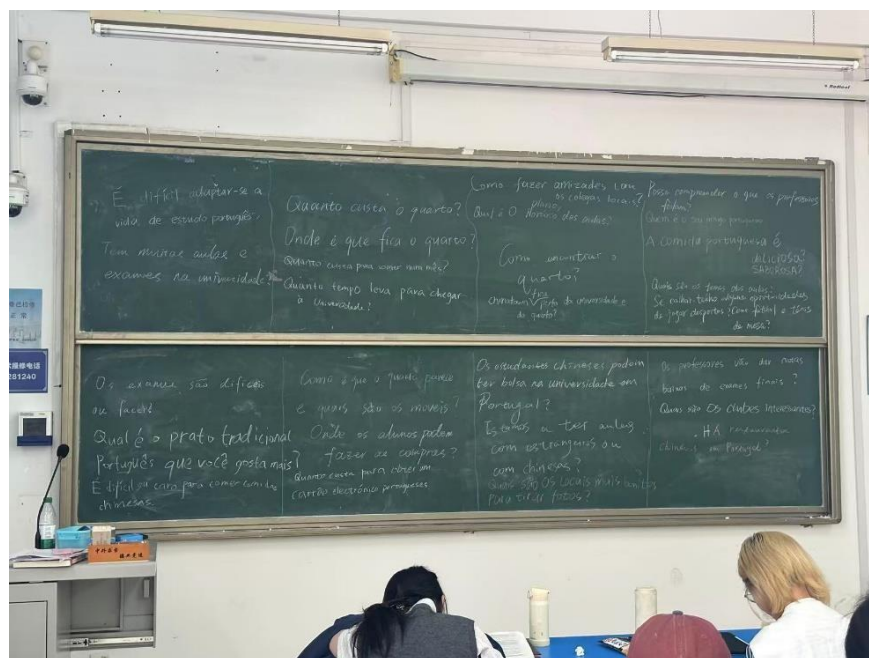 É difícil adaptar-se a
vida de estudo português?
Tem muitas aulas e
exames na universidade?
Quanto custa o quarto?
Onde é que fica o quarto?
Quanto custa para comer num mês?
Quanto tempo leva para chegar
à universidade?
Como fazer amizades com
os colegas locais?
Qual é o plano
das aulas?
Como encontrar o
quarto?
fica
perto da universidade e
do quarto?
Posso compreender o que os professores
falam?
Quem é o seu amigo português
A comida portuguesa é
DILICIOSA?
SABOROSA?
Quais são os temas das aulas?
Se calhar, tenho algumas oportunidades
de jogar desportos, como futebol e ténis
de mesa?
Os exames são difíceis
ou fáceis?
Qual é o prato tradicional
Português que você gosta mais?
É difícil ou caro para comer comida
chinesas.
Como é que o quarto parece
e quais são os móveis?
Onde os alunos podem
fazer as compras?
Quanto custa para obter um
cartão electrónico portugueses
Os estudantes chineses podem
ter bolsa na universidade em
Portugal?
Estamos a ter aulas
com estrangeiros ou
com chineses?
Quais são os locais mais bonitos
para tirar fotos?
Os professores vão dar notas
baixas de exames finais?
Quais são os clubes interessantes?
HÁ restaurantes
chineses em Portugal?
281240